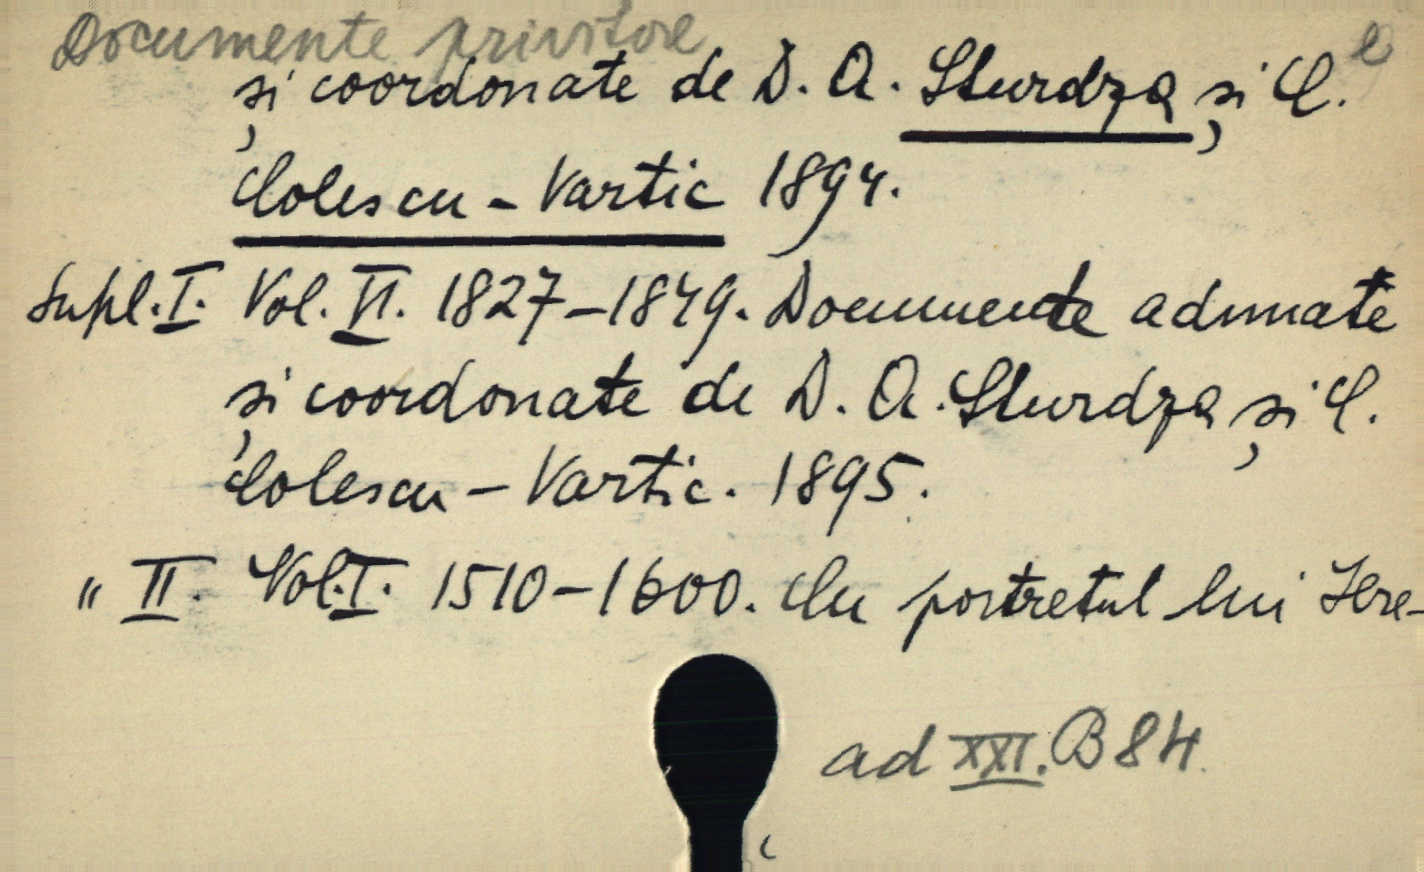 Documente privitore e
și coordonate de D. A. Sturdza și C.
Colescu-Vartic 1894.
Supl. I. Vol. VI. 1827-1849. Documente adunate
și coordonate de D. A. Sturdza și C.
Colescu-Vartic. 1895.
" II. Vol. I. 1510-1600. Cu portretul lui Iere-
ad XXI. B 84.